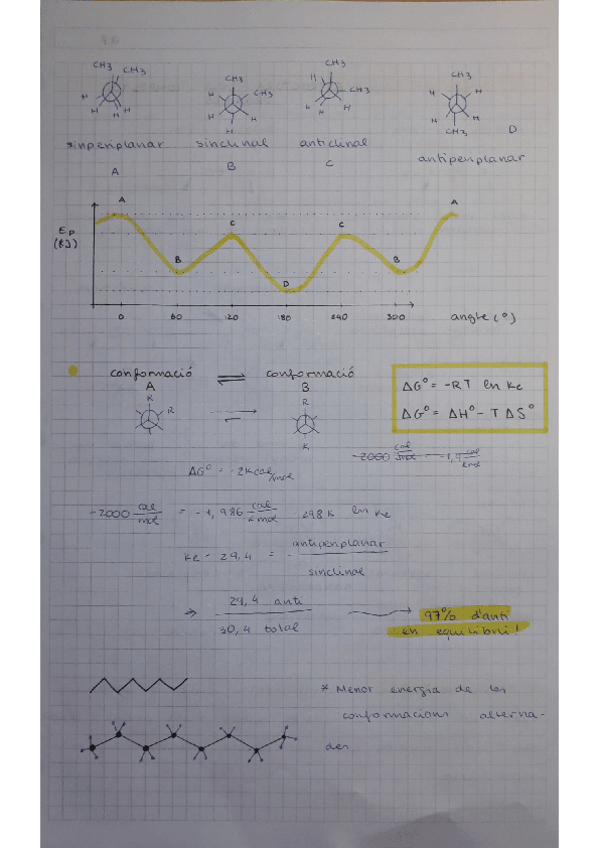 CH3 CH3 CH3 CH3 CH3
H CH3 H CH3 H H
H H H H H H H H H
H CH3
sinperiplanar sinclinal anticlinal D
A B C antiperiplanar
A A
Ep
(kJ)
C C
B B
D
0 60 120 180 240 300 angle (º)
conformació ⇌ conformació
A B
R R
R
R
ΔGº = -RT ln Ke
ΔGº = ΔHº - T ΔSº
ΔGº = -2Kcal/mol
-2000 cal/mol = -1,986 cal/kmol 298K ln Ke
Ke = 29,4 = antiperiplanar
sinclinal
⇒ 29,4 anti
30,4 total
97% d'anti
en equilibri!
* Menor energia de les
conformacions alterna-
des.